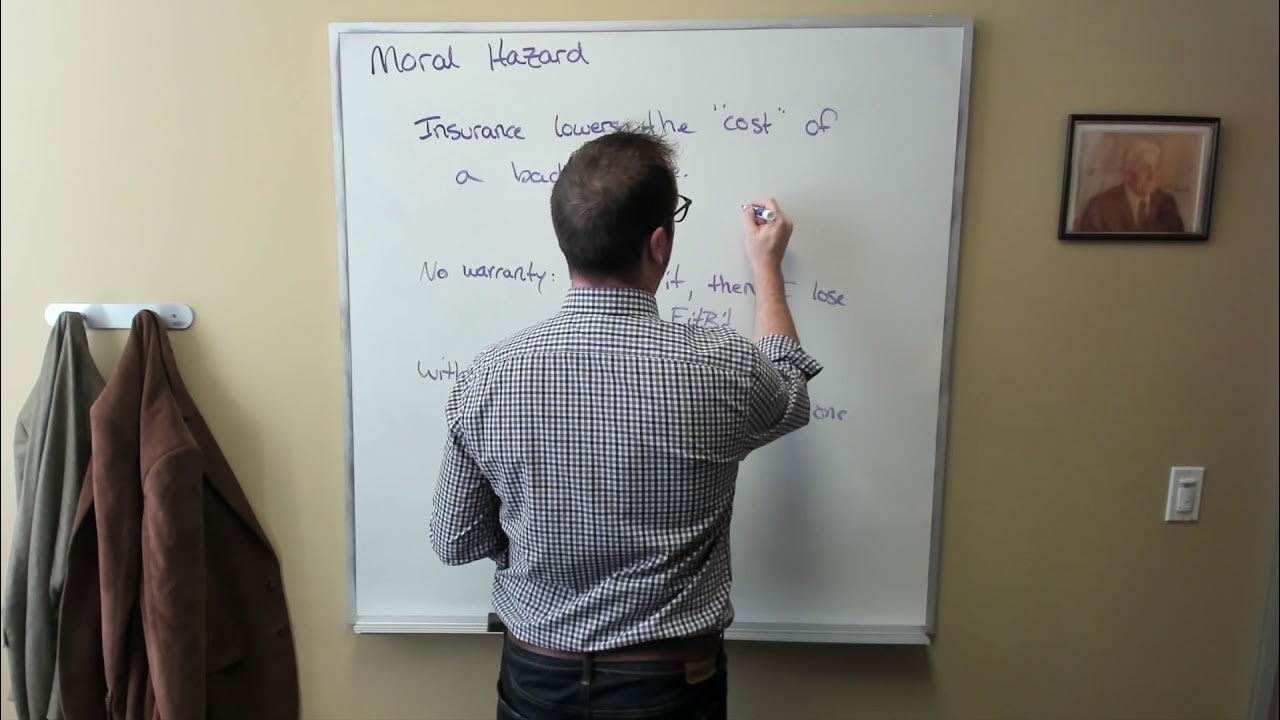 Moral Hazard
Insurance lowers the "cost" of
a bad
No warranty: it, then I lose
FitBit
With
one